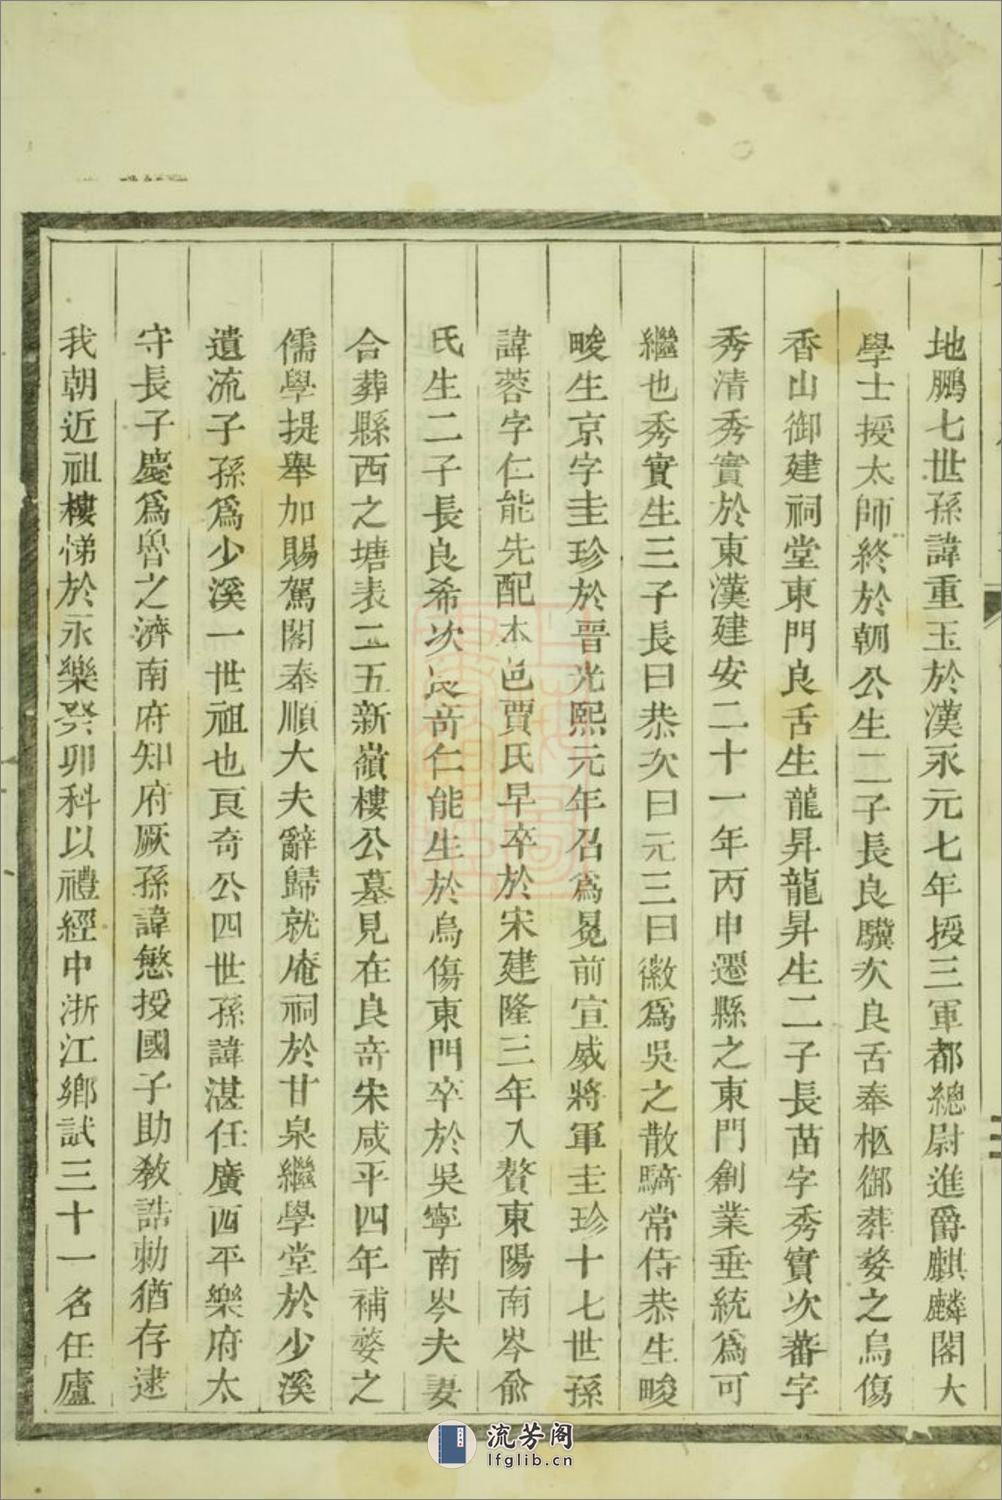 地鵬七世孫諱重玉於漢永元七年授三軍都總尉進爵麒麟閣大
學士授太師終於朝公生二子長良驥次良舌奉柩御葬婺之烏傷
香山御建祠堂東門良舌生龍昇龍昇生二子長苗字秀實次蕃字
秀清秀實於東漢建安二十一年丙申遷縣之東門創業垂統爲可
繼也秀實生三子長曰恭次曰元三曰徽爲吳之散騎常侍恭生畯
畯生京字圭珍於晋光熙元年召爲冕前宣威將軍圭珍十七世孫
諱蓉字仁能先配本邑賈氏早卒於宋建隆三年入贅東陽南岑俞
氏生二子長良希次良奇仁能生於烏傷東門卒於吳寧南岑夫妻
合葬縣西之塘表二五新嶺樓公墓見在良奇宋咸平四年補婺之
儒學提舉加賜駕閣奉順大夫辭歸就庵祠於甘泉繼學堂於少溪
遺流子孫爲少溪一世祖也良奇公四世孫諱湛任廣西平樂府太
守長子慶爲魯之濟南府知府厥孫諱慜授國子助教誥勅猶存逮
我朝近祖樓悌於永樂癸卯科以禮經中浙江鄉試三十一名任廬
流芳阁
lfglib.cn